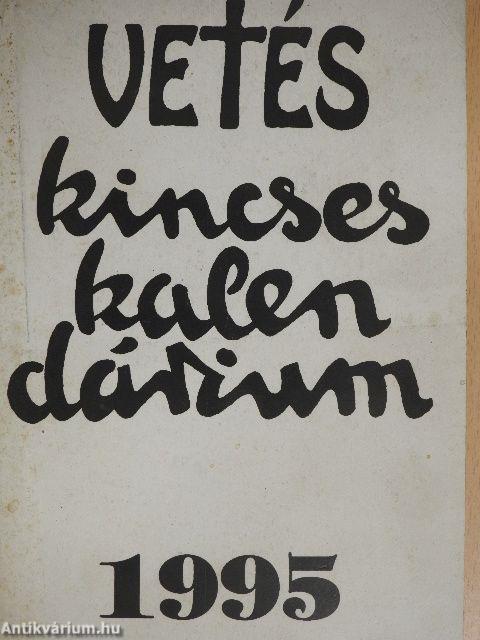 VETÉS
kincses
kalen
dárium
1995
Antikvárium.hu